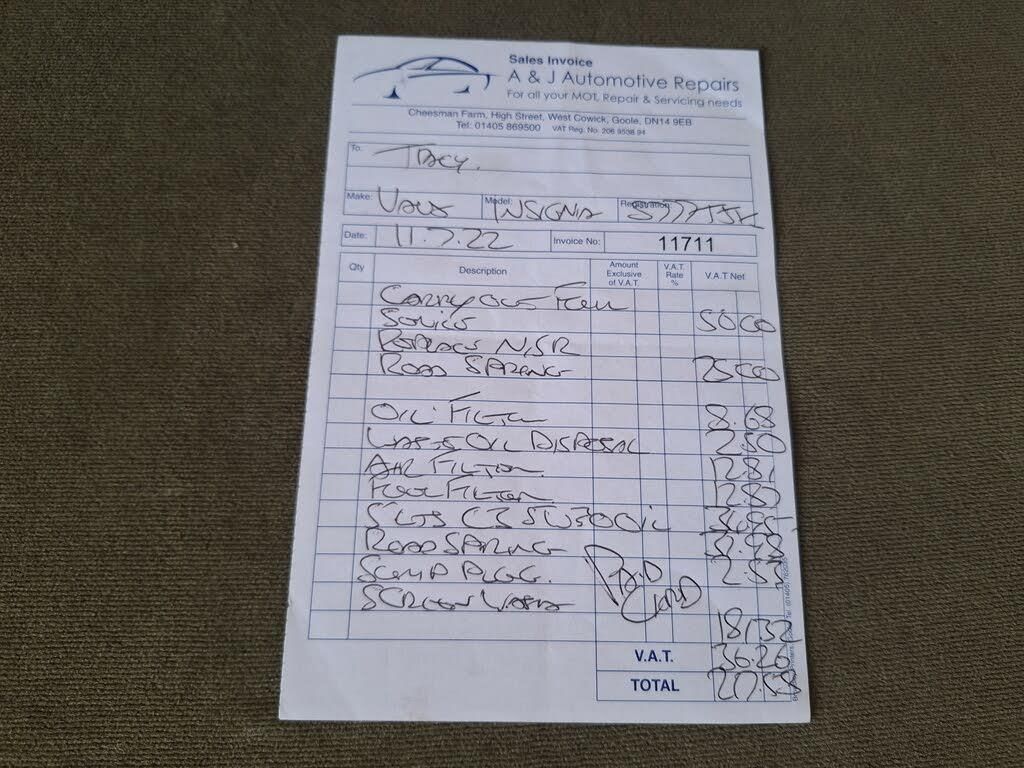 Sales Invoice
A & J Automotive Repairs
For all your MOT, Repair & Servicing needs
Cheesman Farm, High Street, West Cowick, Goole, DN14 9EB
Tel: 01405 869500 VAT Reg. No. 206 9538 94
To: Tracy.
Make: Vaux Model: INSIGNIA Registration
Date: 11.7.22 Invoice No: 11711
Qty Description Amount Exclusive of V.A.T. V.A.T. Rate % V.A.T Net
CARRY OUT FULL
SERVICE 50 00
REPLACE N/S/R
ROAD SPRING 25 00
OIL FILTER 8.68
WASTE OIL DISPOSAL 2.50
AIR FILTER 12.81
FUEL FILTER
5 LTS C3 5W30 OIL
ROAD SPRING
SUMP PLUG.
SCREEN WASH
PAID CARD
181 32
V.A.T. 36.26
TOTAL 217.58